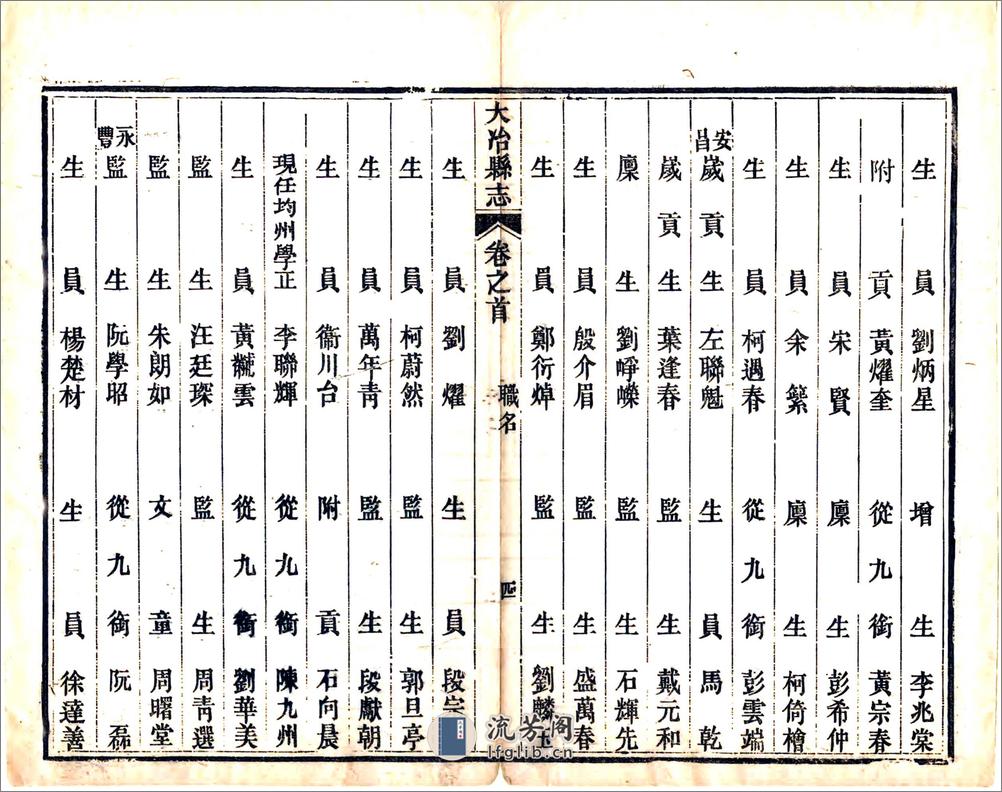 生員劉炳星 增生李兆棠
附貢黃燿奎 從九銜黃宗春
生員宋賢 廩生彭希仲
生員余縈 廩生柯倚檜
生員柯遇春 從九銜彭雲端
安昌歲貢左聯魁 生員馬乾
歲貢生葉逢春 監生戴元和
廩生劉崢嶸 監生石輝先
生員殷介眉 監生盛萬春
生員鄭衍焯 監生劉麟
大冶縣志 卷之首 職名 四
生員劉燿 生員段宗
生員柯蔚然 監生郭旦亭
生員萬年青 監生段獻朝
生員衞川台 附貢石向晨
現任均州學正李聯輝 從九銜陳九州
生員黃黻雲 從九銜劉華美
監生汪廷琛 監生周青選
監生朱朗如 文童周曙堂
永豐監生阮學昭 從九銜阮磊
生員楊楚材 生員徐達善
流芳阁
lfglib.cn